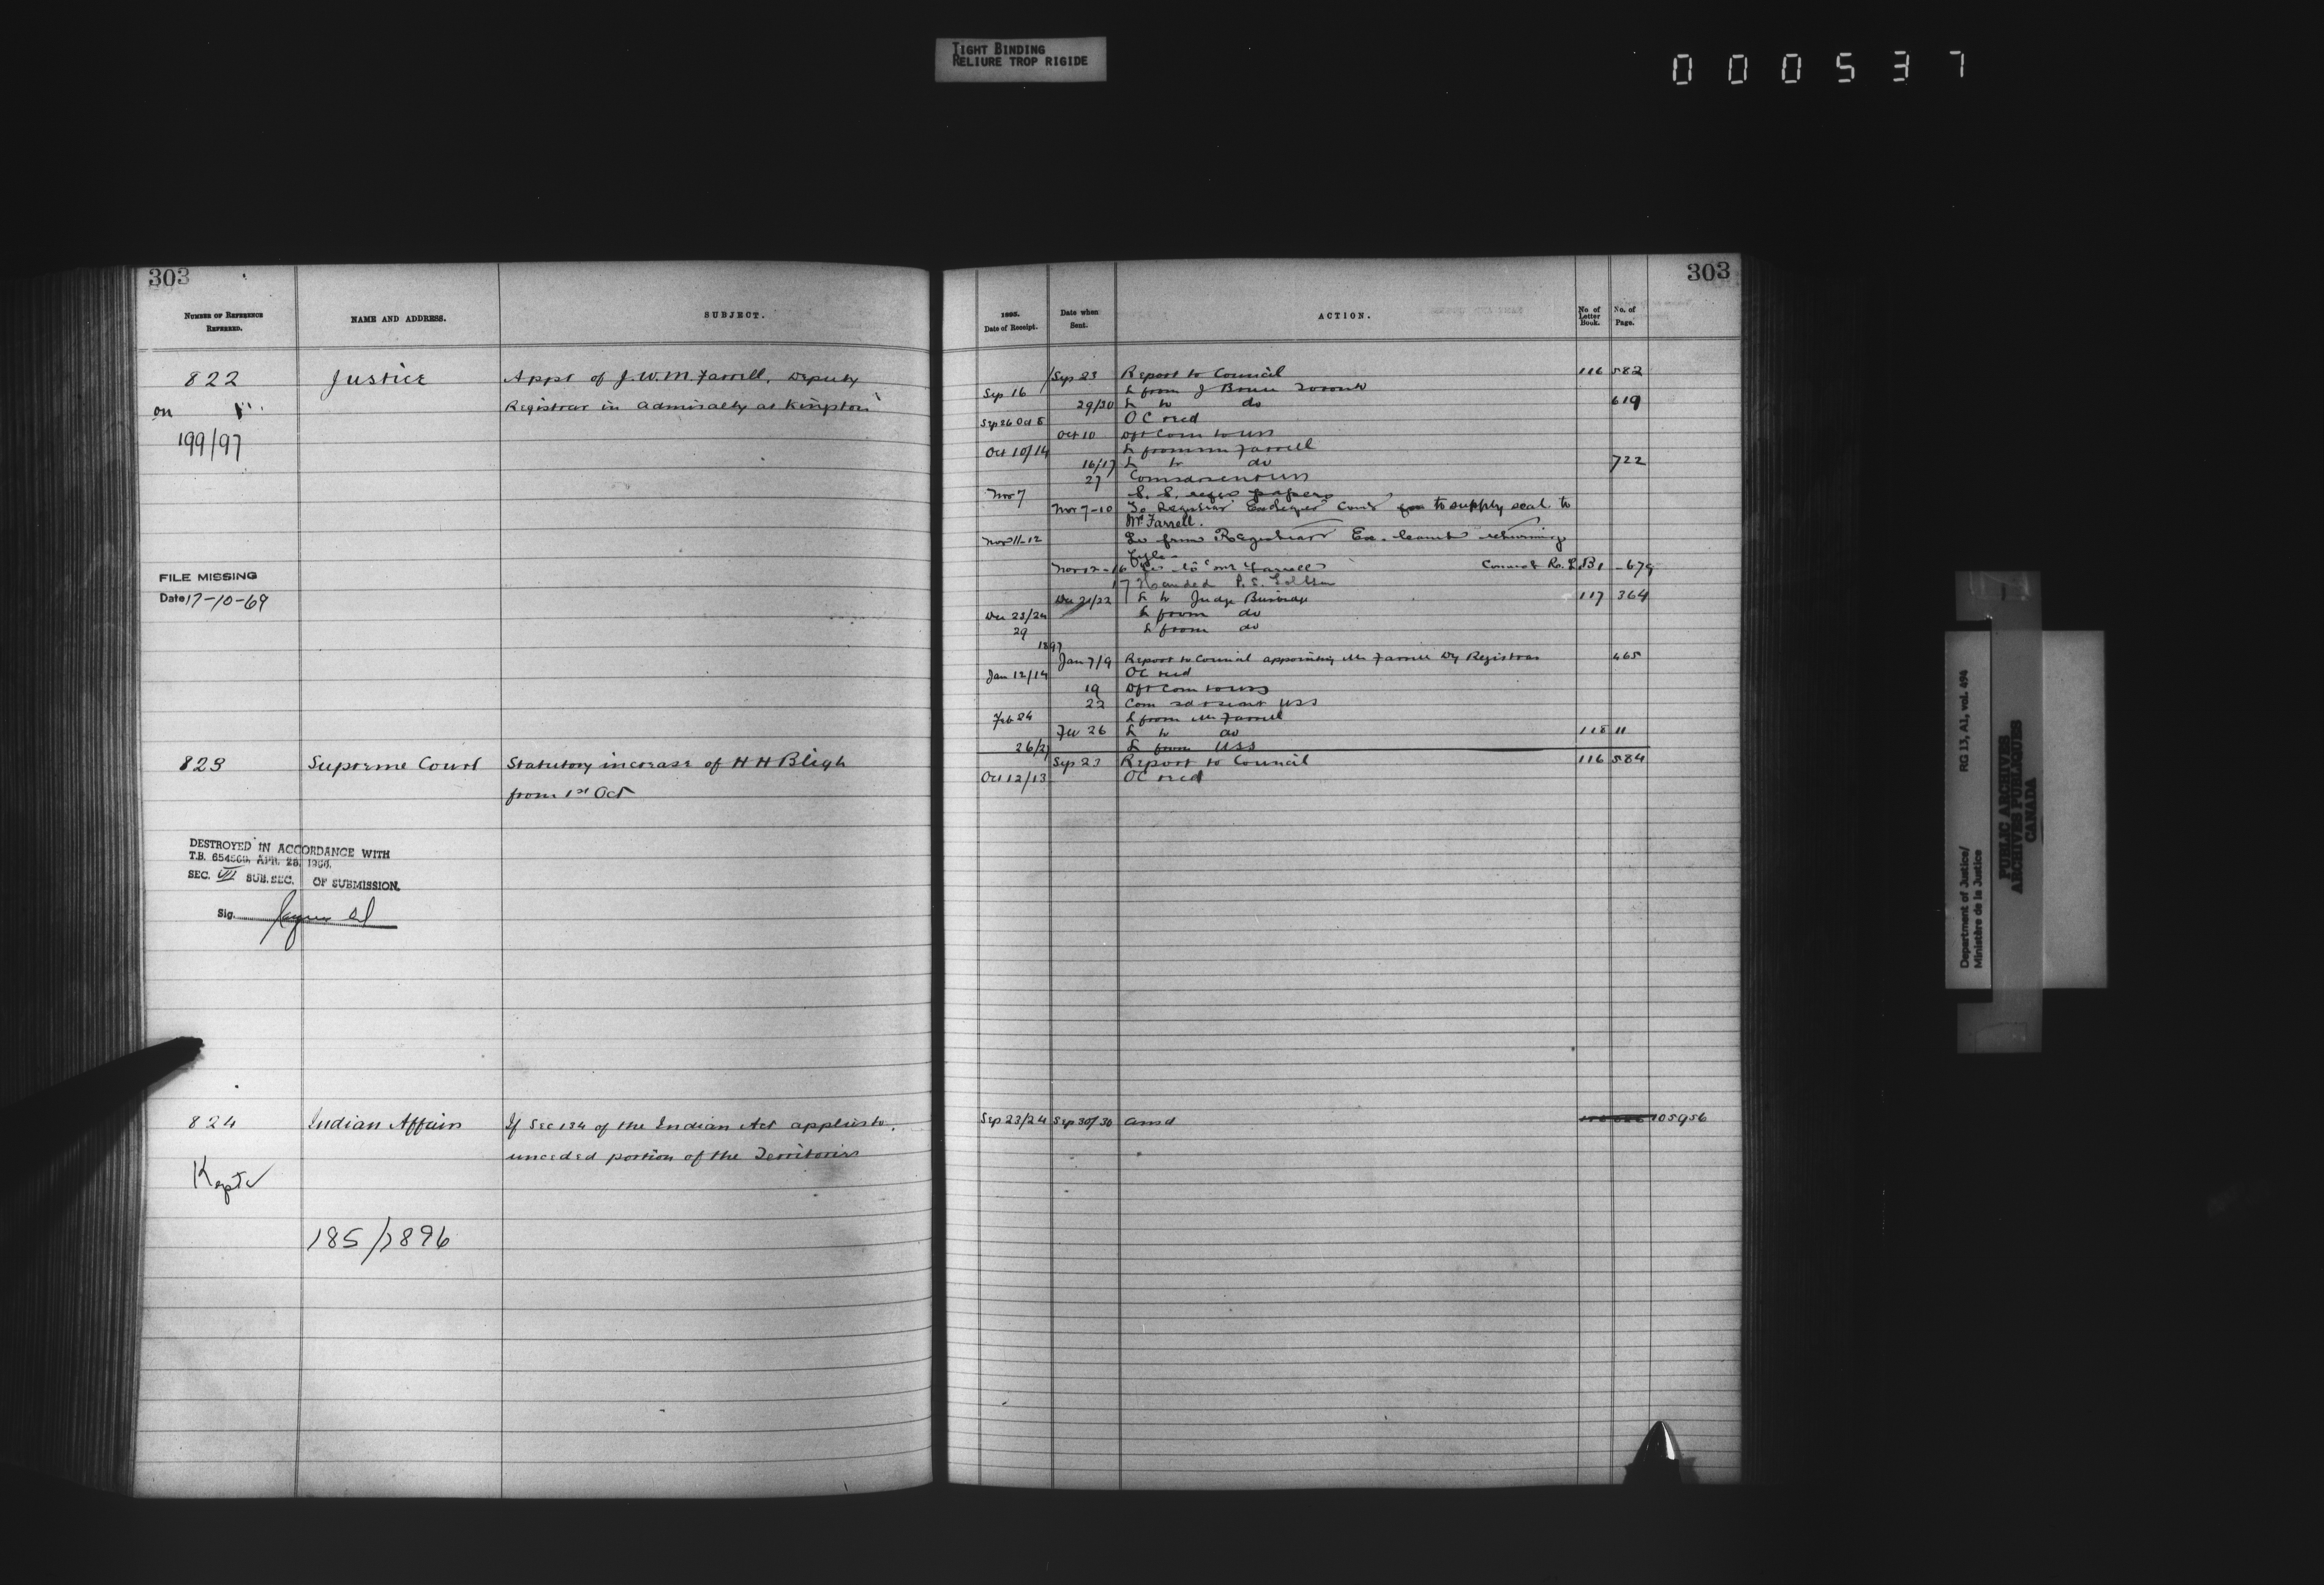 TIGHT BINDING
RELIURE TROP RIGIDE
000537
303
NUMBER OF REFERENCE REFERRED.
NAME AND ADDRESS.
SUBJECT.
822 Justice Appt of J. W. M. Farrell, Deputy
on Registrar in Admiralty at Kingston
199/97
FILE MISSING
Date 17-10-69
823 Supreme Court Statutory increase of H H Bligh
from 1st Oct
DESTROYED IN ACCORDANCE WITH
T.B. APR. 28,
SEC. VII SUB. SEC. OF SUBMISSION.
Sig.
824 Indian Affairs If Sec 134 of the Indian Act applies to
unceded portion of the Territories
Kept
185/1896
303
Date of Receipt.
Date when Sent.
ACTION.
No of Letter Book.
No. of Page.
Sep 23 Report to Council 116 582
Sep 16 L from J
29/30 L to do 619
Sep 26 Oct 8 OC recd
Oct 10 Dft Com to USS
Oct 10/14 L from Mr Farrell
16/17 L to do 722
27
Nov 7 S. S. papers
Nov 7-10 To Registrar Court to supply seal to
Mr Farrell.
Nov 11-12 from Registrar Ex. Court returning
file
to Mr Farrell -679
17 Handed P. S.
Dec 21/22 L to Judge Burbidge 117 364
Dec 23/24 L from do
29 L from do
1897
Jan 7/9 Report to Council appointing Mr Farrell Dy Registrar 465
Jan 12/14 OC recd
19 Dft Com to USS
22 Com USS
Feb 24 L from Mr Farrell
Feb 26 L to do 118 11
L from USS
Sep 23 Report to Council 116 584
Oct 12/13 OC recd
Sep 23/24 Sep 30/30 Ansd 105956
Department of Justice/
Ministère de la Justice
RG 13, A1, vol. 494
PUBLIC ARCHIVES
ARCHIVES PUBLIQUES
CANADA